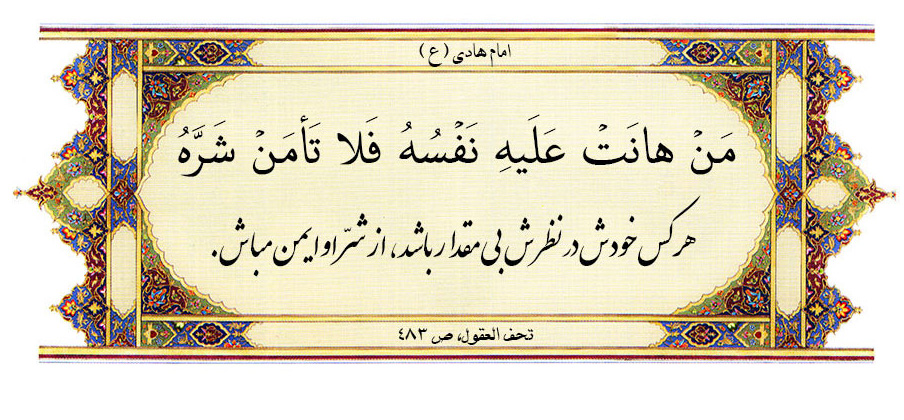 امام هادی (ع)
مَنْ هانَتْ عَلَيهِ نَفْسُهُ فَلا تَأمَنْ شَرَّهُ
هر کس خودش در نظرش بی مقدار باشد، از شرّ او ایمن مباش.
تحف العقول، ص ٤٨٣